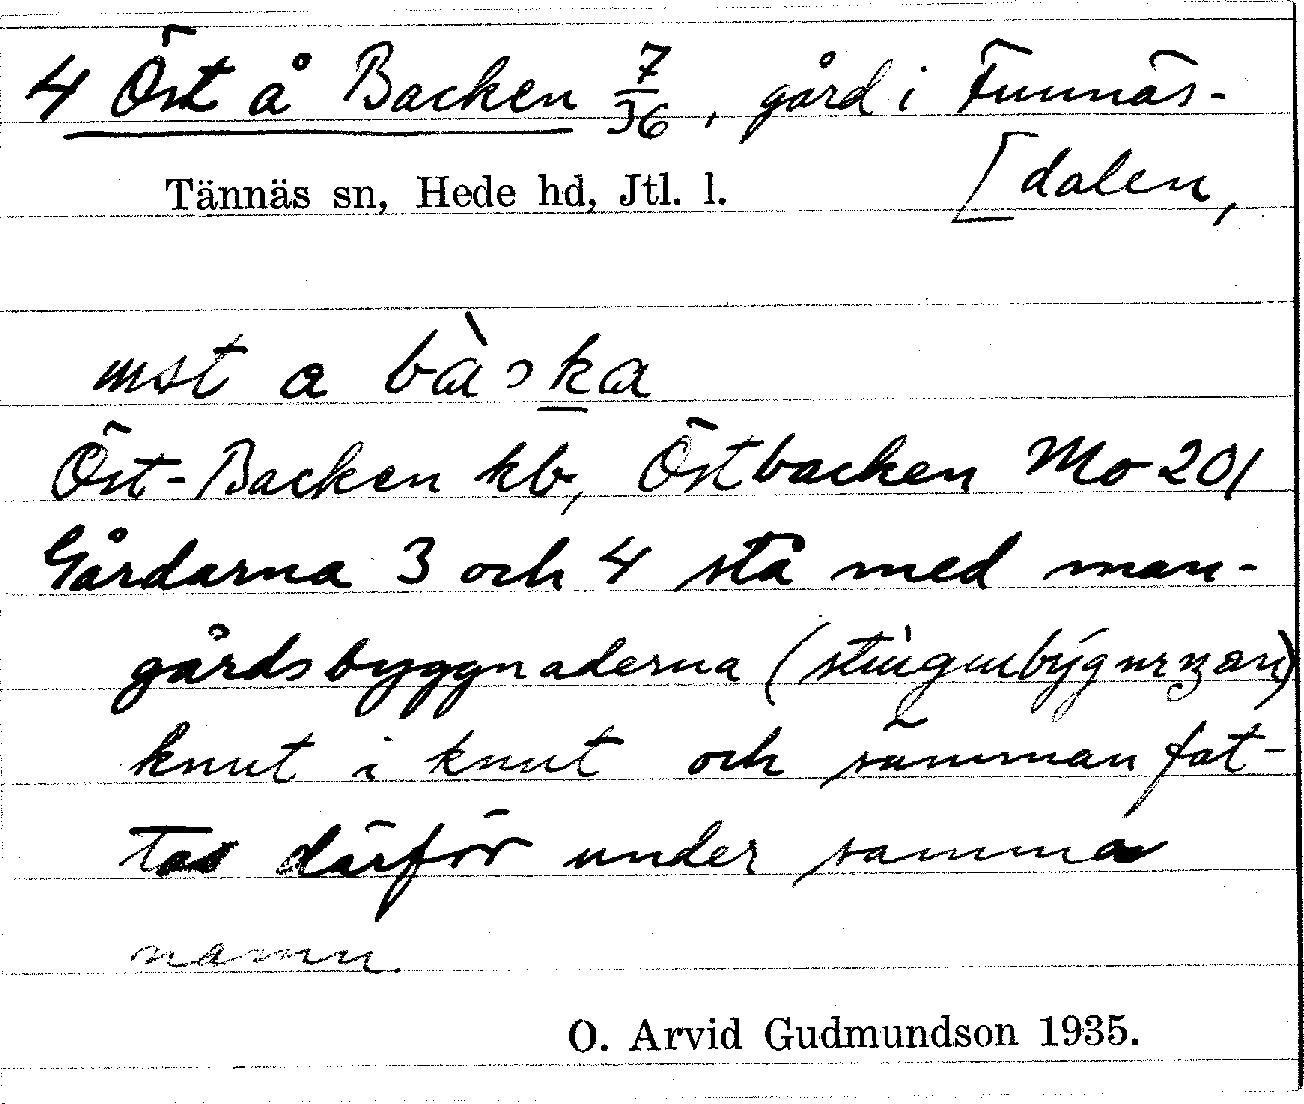 4 Öst å Backen 7/36, gård i Funnäs-
Tännäs sn, Hede hd, Jtl. l. [dalen,
a
Öst-Backen kb, Östbacken Mo 201
Gårdarna 3 och 4 stå med man-
gårdsbyggnaderna
knut i knut och samman fat-
tas därför under samma
namn.
O. Arvid Gudmundson 1935.